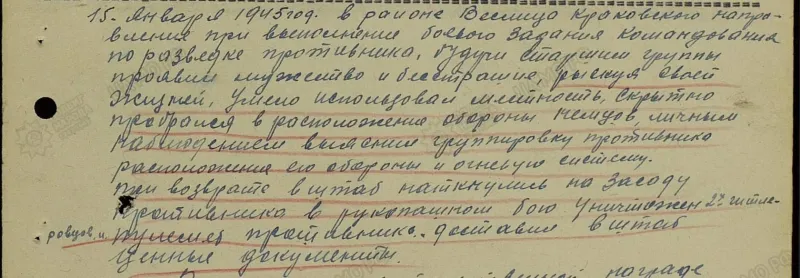 15. Января 1945 год. в районе Веслица Краковского напра-
вления при выполнение боевого задания командования
по разведке противника, будучи старшим группы
проявил мужество и бесстрашие, рыскуя своей
жизней, умело использовал местность, скрытно
пробрался в расположение обороны немцов, личным
наблюдением выяснил группировку противника
расположения его обороны и огневую систему.
При возврате в штаб наткнулись на засаду
противника в рукопашном бою уничтожен 2х гитле-
ровцов, и пулемет противника. доставил в штаб
ценные документы.
награде